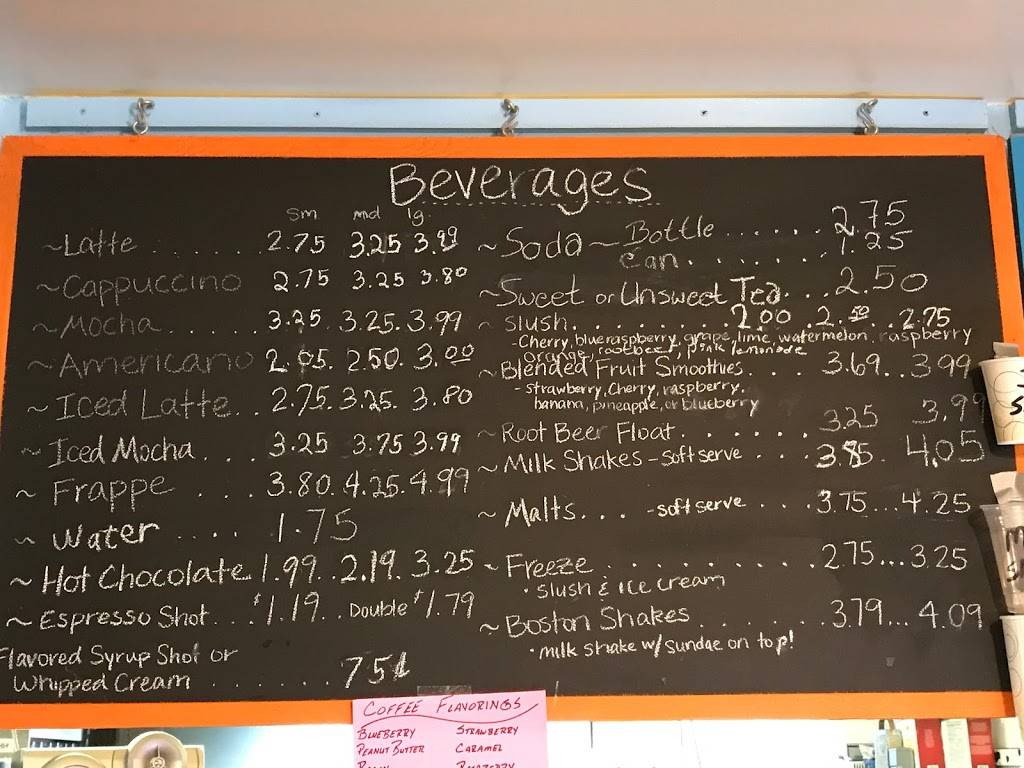 Beverages
sm md lg
~Latte ...... 2.75 3.25 3.99
~Cappuccino 2.75 3.25 3.80
~Mocha...... 3.25. 3.25. 3.99
~Americano 2.95. 2.50. 3.00
~Iced Latte.. 2.75. 3.25. 3.80
~Iced Mocha... 3.25 3.75 3.99
~Frappe .... 3.80. 4.25. 4.99
~Water .... 1.75
~Hot Chocolate 1.99..2.19. 3.25
~Espresso Shot...$1.19.. Double $1.79
Flavored Syrup Shot or
Whipped Cream ....... 75¢
~Soda~Bottle ...... 2.75
Can....... 1.25
~Sweet or Unsweet Tea...2.50
~Slush........ 2.00 .2.50 .. 2.75
-Cherry, blueraspberry, grape, lime, watermelon, raspberry
orange, rootbeer, pink lemonade
~Blended Fruit Smoothies.... 3.69...3.99
-Strawberry, Cherry, raspberry,
banana, pineapple, or blueberry
~Root Beer Float....... 3.25 3.99
~Milk Shakes-soft serve ... 3.85. 4.05
~Malts... -soft serve ... 3.75...4.25
~Freeze .......... 2.75...3.25
• Slush & ice cream
~Boston Shakes ....... 3.79... 4.09
• milk shake w/ Sundae on top!
Coffee Flavorings
Blueberry Strawberry
Peanut Butter Caramel